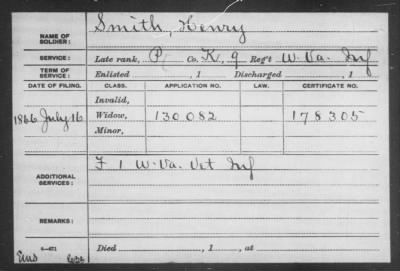 NAME OF SOLDIER: Smith, Henry
SERVICE: Late rank, P Co. K, 9 Reg't W. Va. Inf
TERM OF SERVICE: Enlisted , 1 Discharged , 1
DATE OF FILING. CLASS. APPLICATION NO. LAW. CERTIFICATE NO.
Invalid,
1866 July 16 Widow, 130.082 178305
Minor,
ADDITIONAL SERVICES: F 1 W. Va. Vet Inf
REMARKS:
Died , 1 , at